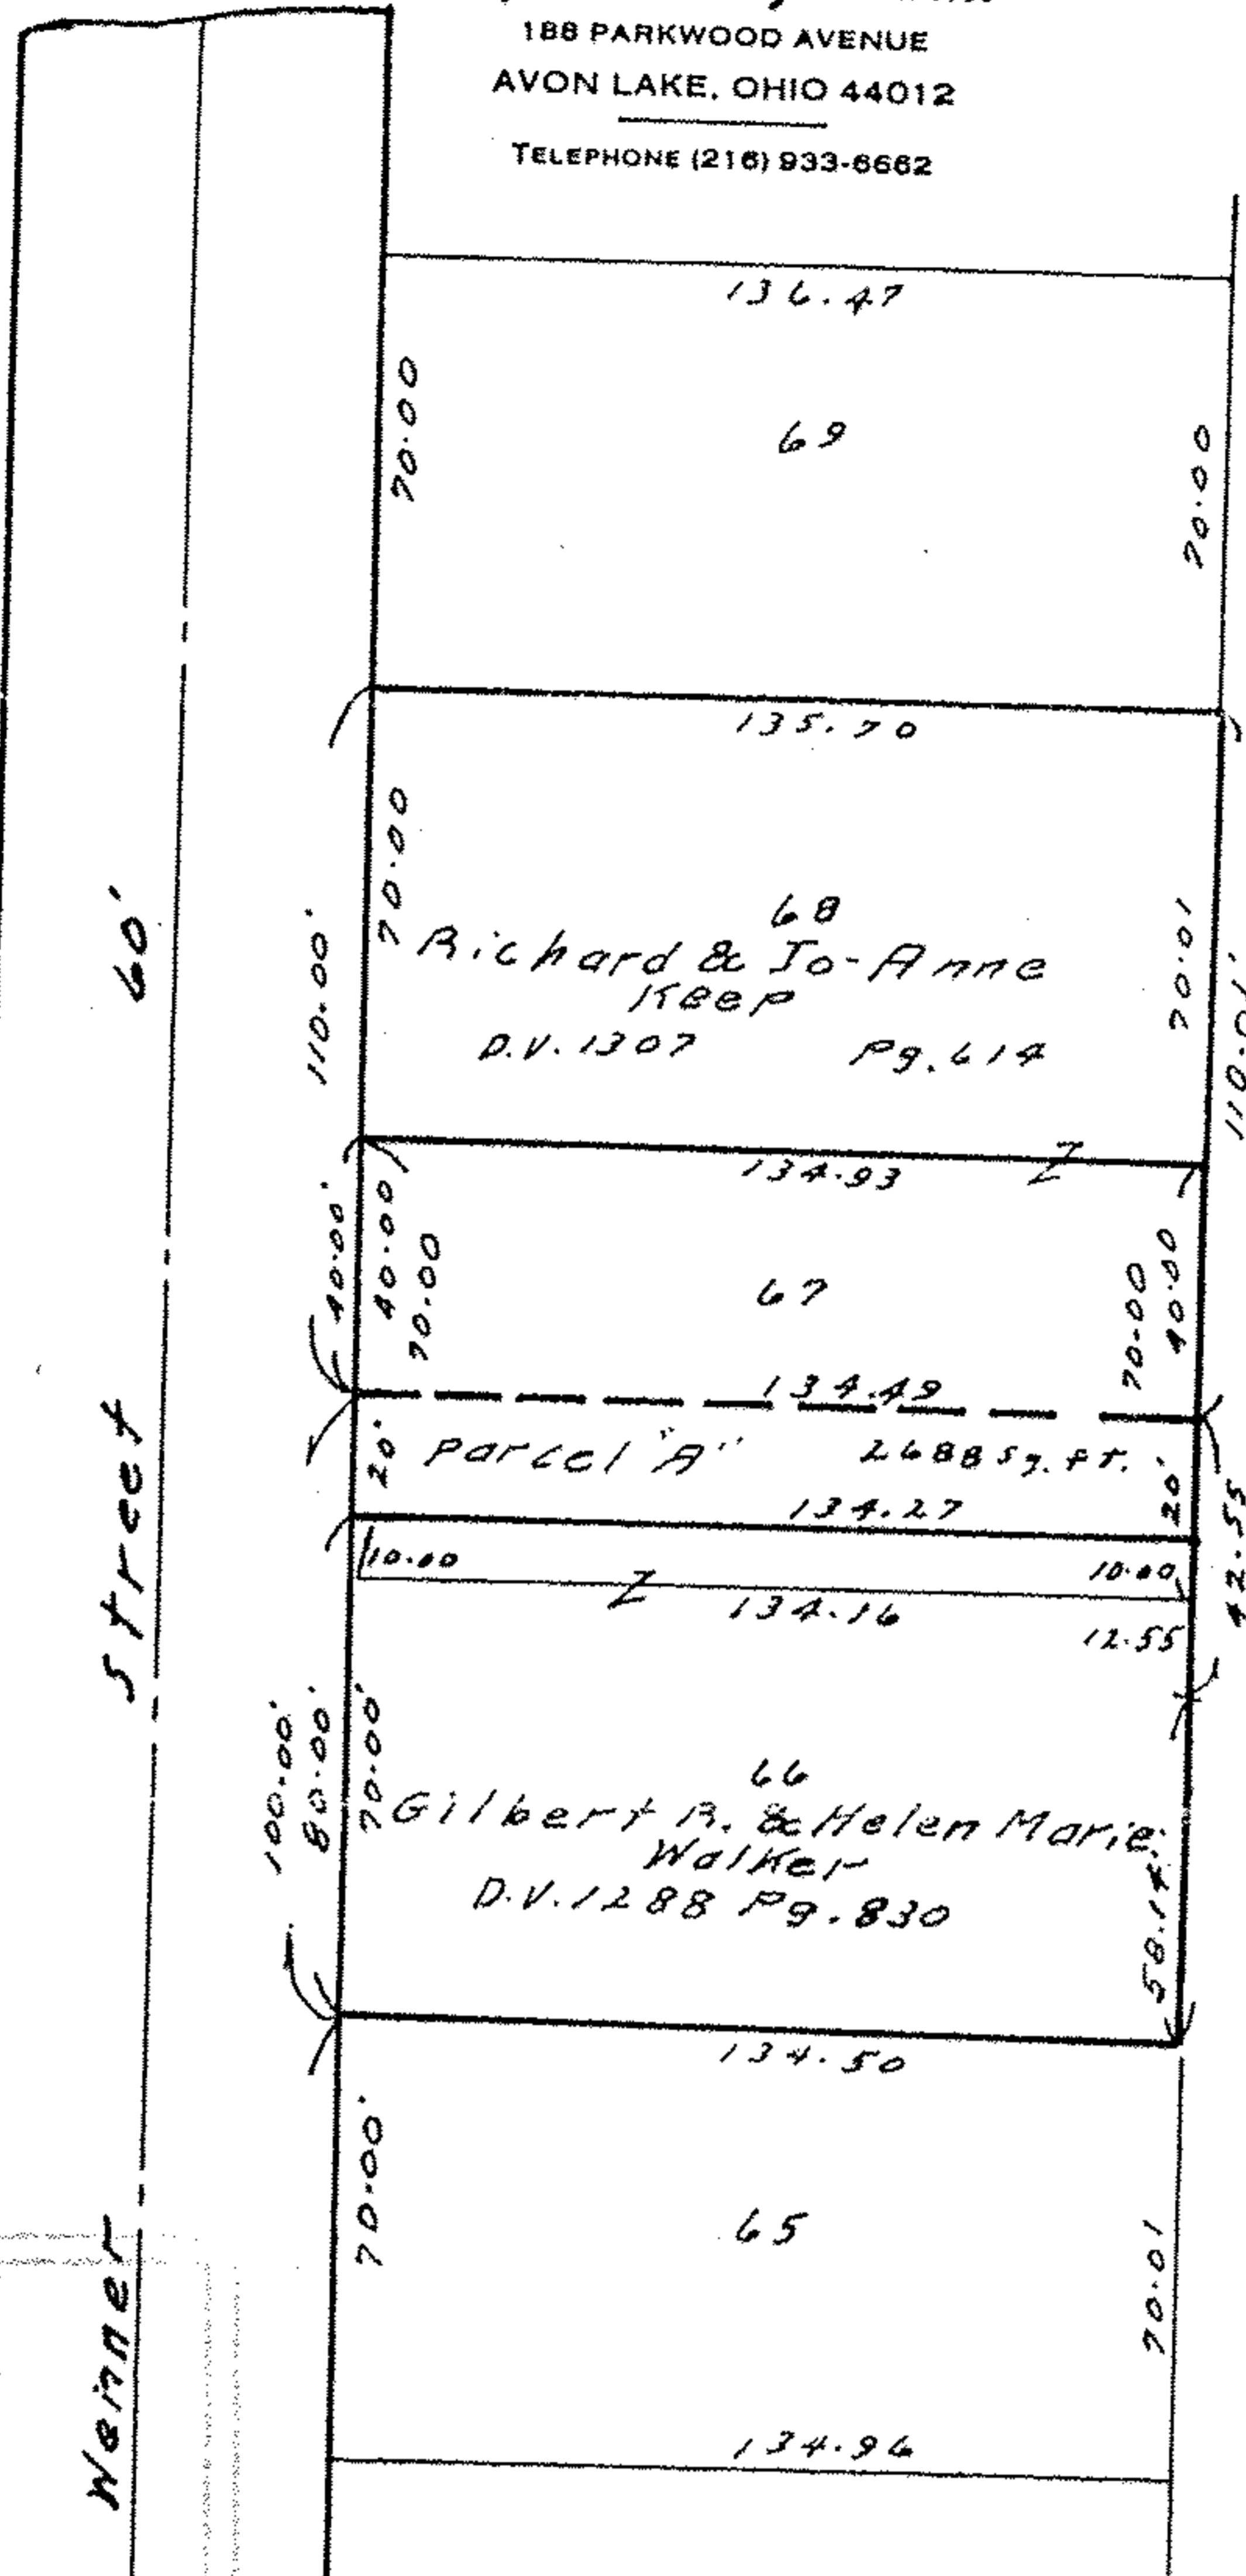 188 PARKWOOD AVENUE
AVON LAKE, OHIO 44012
TELEPHONE (216) 933-6662
136.47
70.00
69
70.00
135.70
70.00
68
Richard & Jo-Anne
Keep
D.V. 1307 Pg. 614
70.01
110.00'
110.01'
60'
134.93
40.00'
40.00
70.00
67
70.00
40.00
134.49
20'
Parcel "A" 2688 Sq. ft.
20'
134.27
42.55
10.00
10.00
134.16
12.55
100.00'
80.00'
70.00'
66
Gilbert R. & Helen Marie
Walker
D.V. 1288 Pg. 830
58.14
134.50
70.00'
65
70.01
134.96
Wenner Street